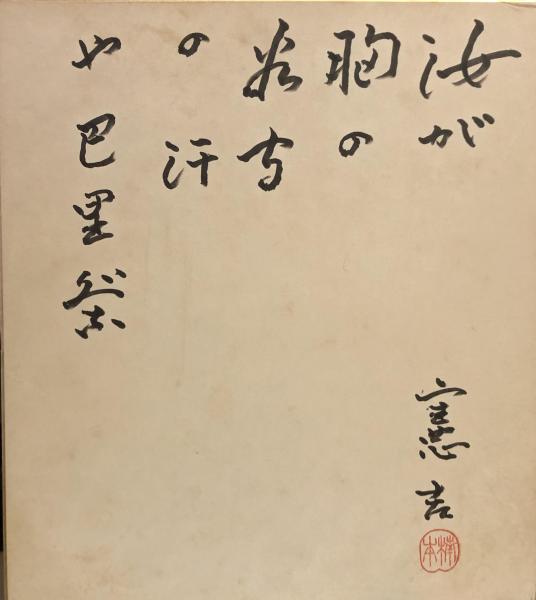 汝が
胸の
谷間
の汗
や巴里祭
憲吉
楠本